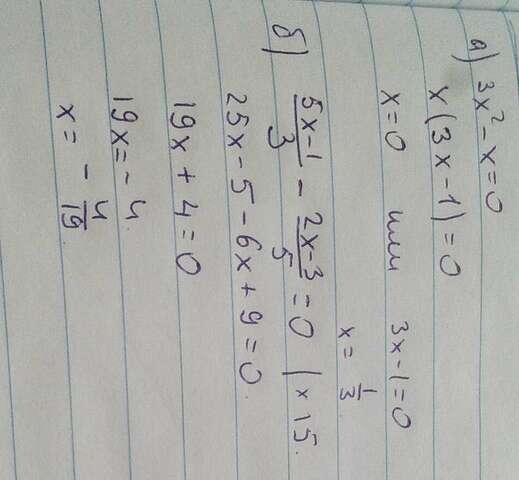 а) 3x² - x = 0
x(3x - 1) = 0
x = 0 или 3x - 1 = 0
x = 1/3
б) (5x-1)/3 - (2x-3)/5 = 0 | × 15
25x - 5 - 6x + 9 = 0
19x + 4 = 0
19x = - 4
x = - 4/19